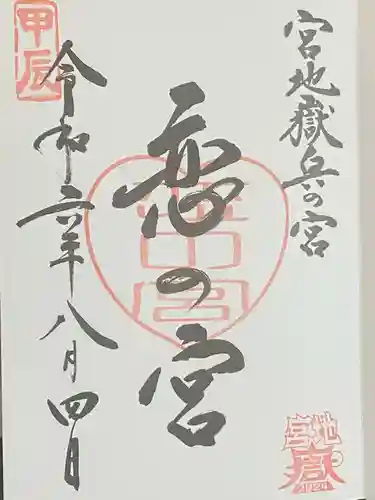 宮地嶽兵の宮
恋の宮
令和六年八月四日
甲辰
宮地
嶽
2024